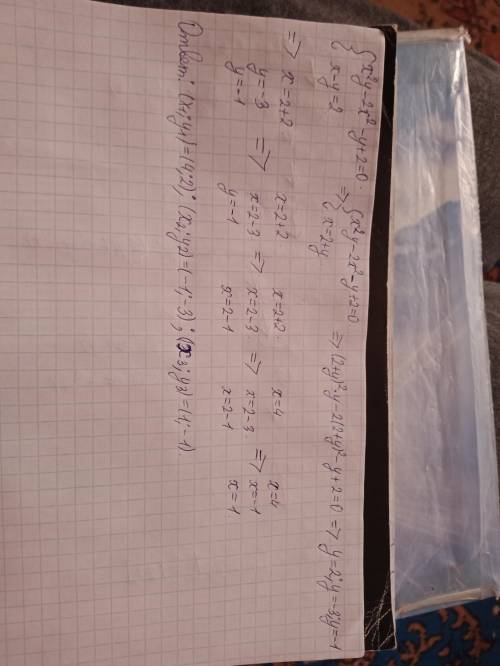 {x²y-2x²-y+2=0. => {x²y-2x²-y+2=0 => (2+y)²·y-2(2+y)²-y+2=0 => y=2; y=-3; y=-1
{x-y=2 {x=2+y
=> x=2+2 x=2+2 x=2+2 x=4 x=4
y=-3 => x=2-3 => x=2-3 => x=2-3 => x=-1
y=-1 y=-1 x=2-1 x=2-1 x=1
Ответ: (x₁; y₁)=(4;2); (x₂; y₂)=(-1;-3); (x₃; y₃)=(1;-1)